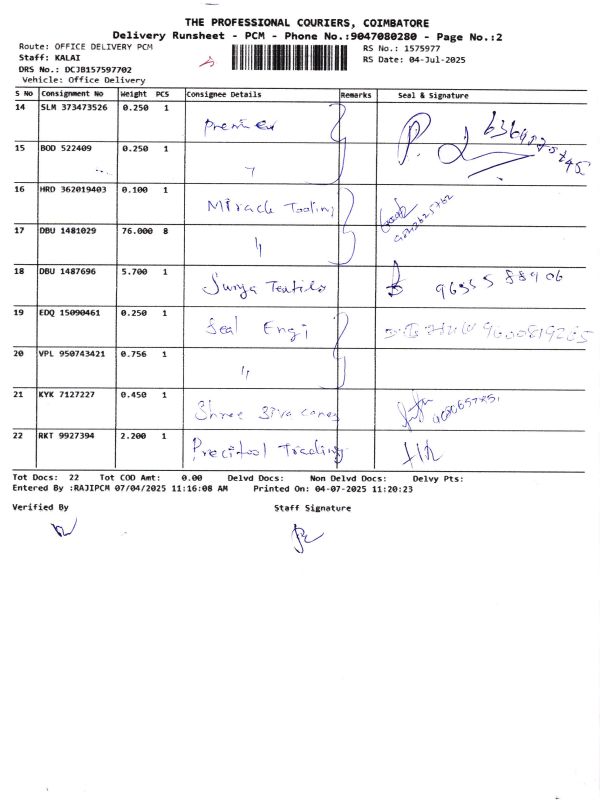 THE PROFESSIONAL COURIERS, COIMBATORE
Delivery Runsheet - PCM - Phone No.:9047080280 - Page No.:2
Route: OFFICE DELIVERY PCM
RS No.: 1575977
Staff: KALAI
RS Date: 04-Jul-2025
DRS No.: DCJB157597702
Vehicle: Office Delivery
S No Consignment No Weight PCS Consignee Details Remarks Seal & Signature
14 SLM 373473526 0.250 1 Premier
15 BOD 522409 0.250 1 "
16 HRD 362019403 0.100 1 Miracle Tooling
17 DBU 1481029 76.000 8 "
18 DBU 1487696 5.700 1 Surya Textiles 96555 88906
19 EDQ 15090461 0.250 1 Seal Engi
20 VPL 950743421 0.756 1 "
21 KYK 7127227 0.450 1 Shree Siva
22 RKT 9927394 2.200 1 Precitool Trading
Tot Docs: 22 Tot COD Amt: 0.00 Delvd Docs: Non Delvd Docs: Delvy Pts:
Entered By :RAJIPCM 07/04/2025 11:16:08 AM Printed On: 04-07-2025 11:20:23
Verified By Staff Signature